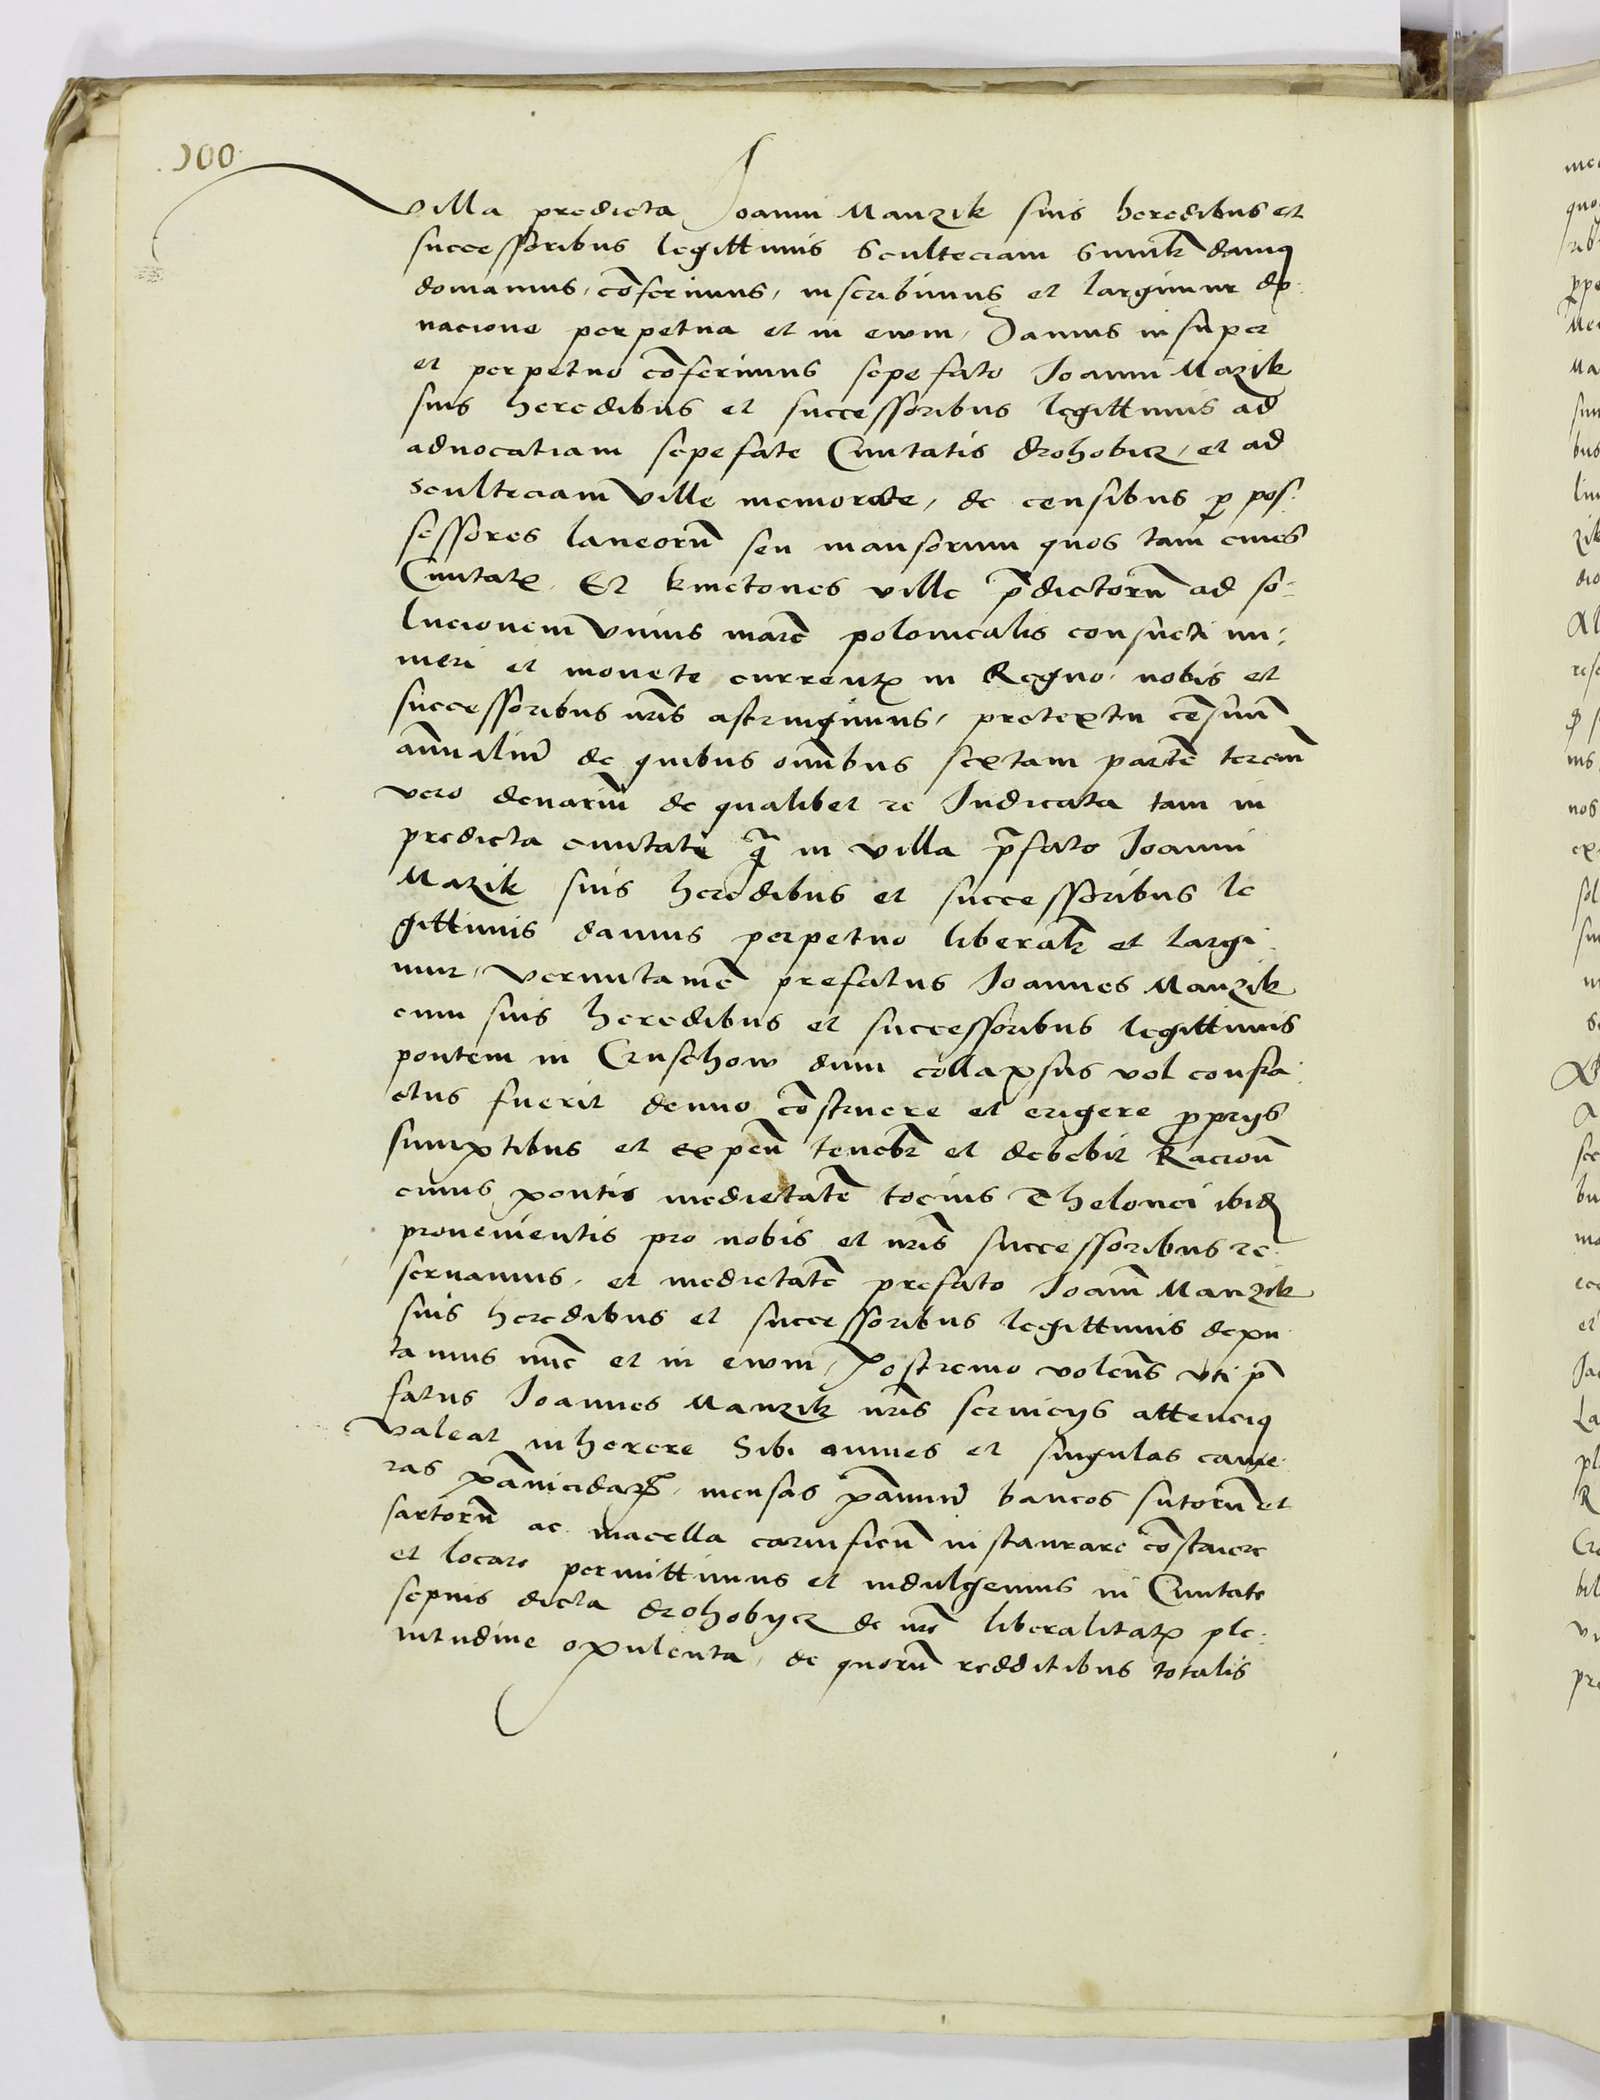 100
villa predicta Joanni Manzik suis heredibus et
successoribus legittimis Sculteciam damus
donamus, cōferimus, inscribimus et largimur do-
nacione perpetua et in ewm, Damus insuper
et perpetuo cōferimus sepefato Joanni Mazik
suis heredibus et successoribus legittimis ad
aduocatiam sepefate Ciuitatis drohobicz, et ad
Sculteciam ville memorate, de censibus ꝑ pos-
sessores laneorū seu mansorum quos tam ciues
Ciuitatꝭ Et kmetones ville p̄dictorū ad so-
lucionem vnius marc̄ polonicalis consueti nu-
meri et monete currentꝭ in Regno, nobis et
successoribus nr̄is astringimus, pretextu cēsuū
ān̄ualiū de quibus om̄ibus sextam partē terciū
vero denariū de qualibet re Judicata tam in
predicta ciuitate q̄ in villa p̄fato Joanni
Mazik suis heredibus et successoribus le
gittimis damus perpetuo liberalr̄ et largi-
mur, verūtamē prefatus Joannes Manzik
cum suis heredibus et successoribus legittimis
pontem in Cruschow dum collapsus vel confra-
ctus fuerit denuo cōstruere et erigere ꝓprijs
sumptibus et expen̄ tenebr̄ et debebit Racioñ
cuius pontis medietatē tocius Thelonei ibid̄
prouenientis pro nobis et nr̄is successoribus re-
seruamus, et medietatē prefato Joan̄ Manzik
suis heredibus et successoribus legittimis depu-
tamus nūc et in ewm, Postremo volens vti p̄
fatus Joannes Manzik nr̄is seruicijs attenciꝰ
valeat inherere Sibi omnes et singulas came-
ras pānicidarꝝ, mensas pānum bancos sutorū et
sartorū ac macella carnificū instaurare cōstruere
et locare permittimus et indulgemus in Ciuitate
sepius dicta drohobycz de nr̄e liberalitatꝭ ple-
nitudine opulenta, de quorū redditibus totalis